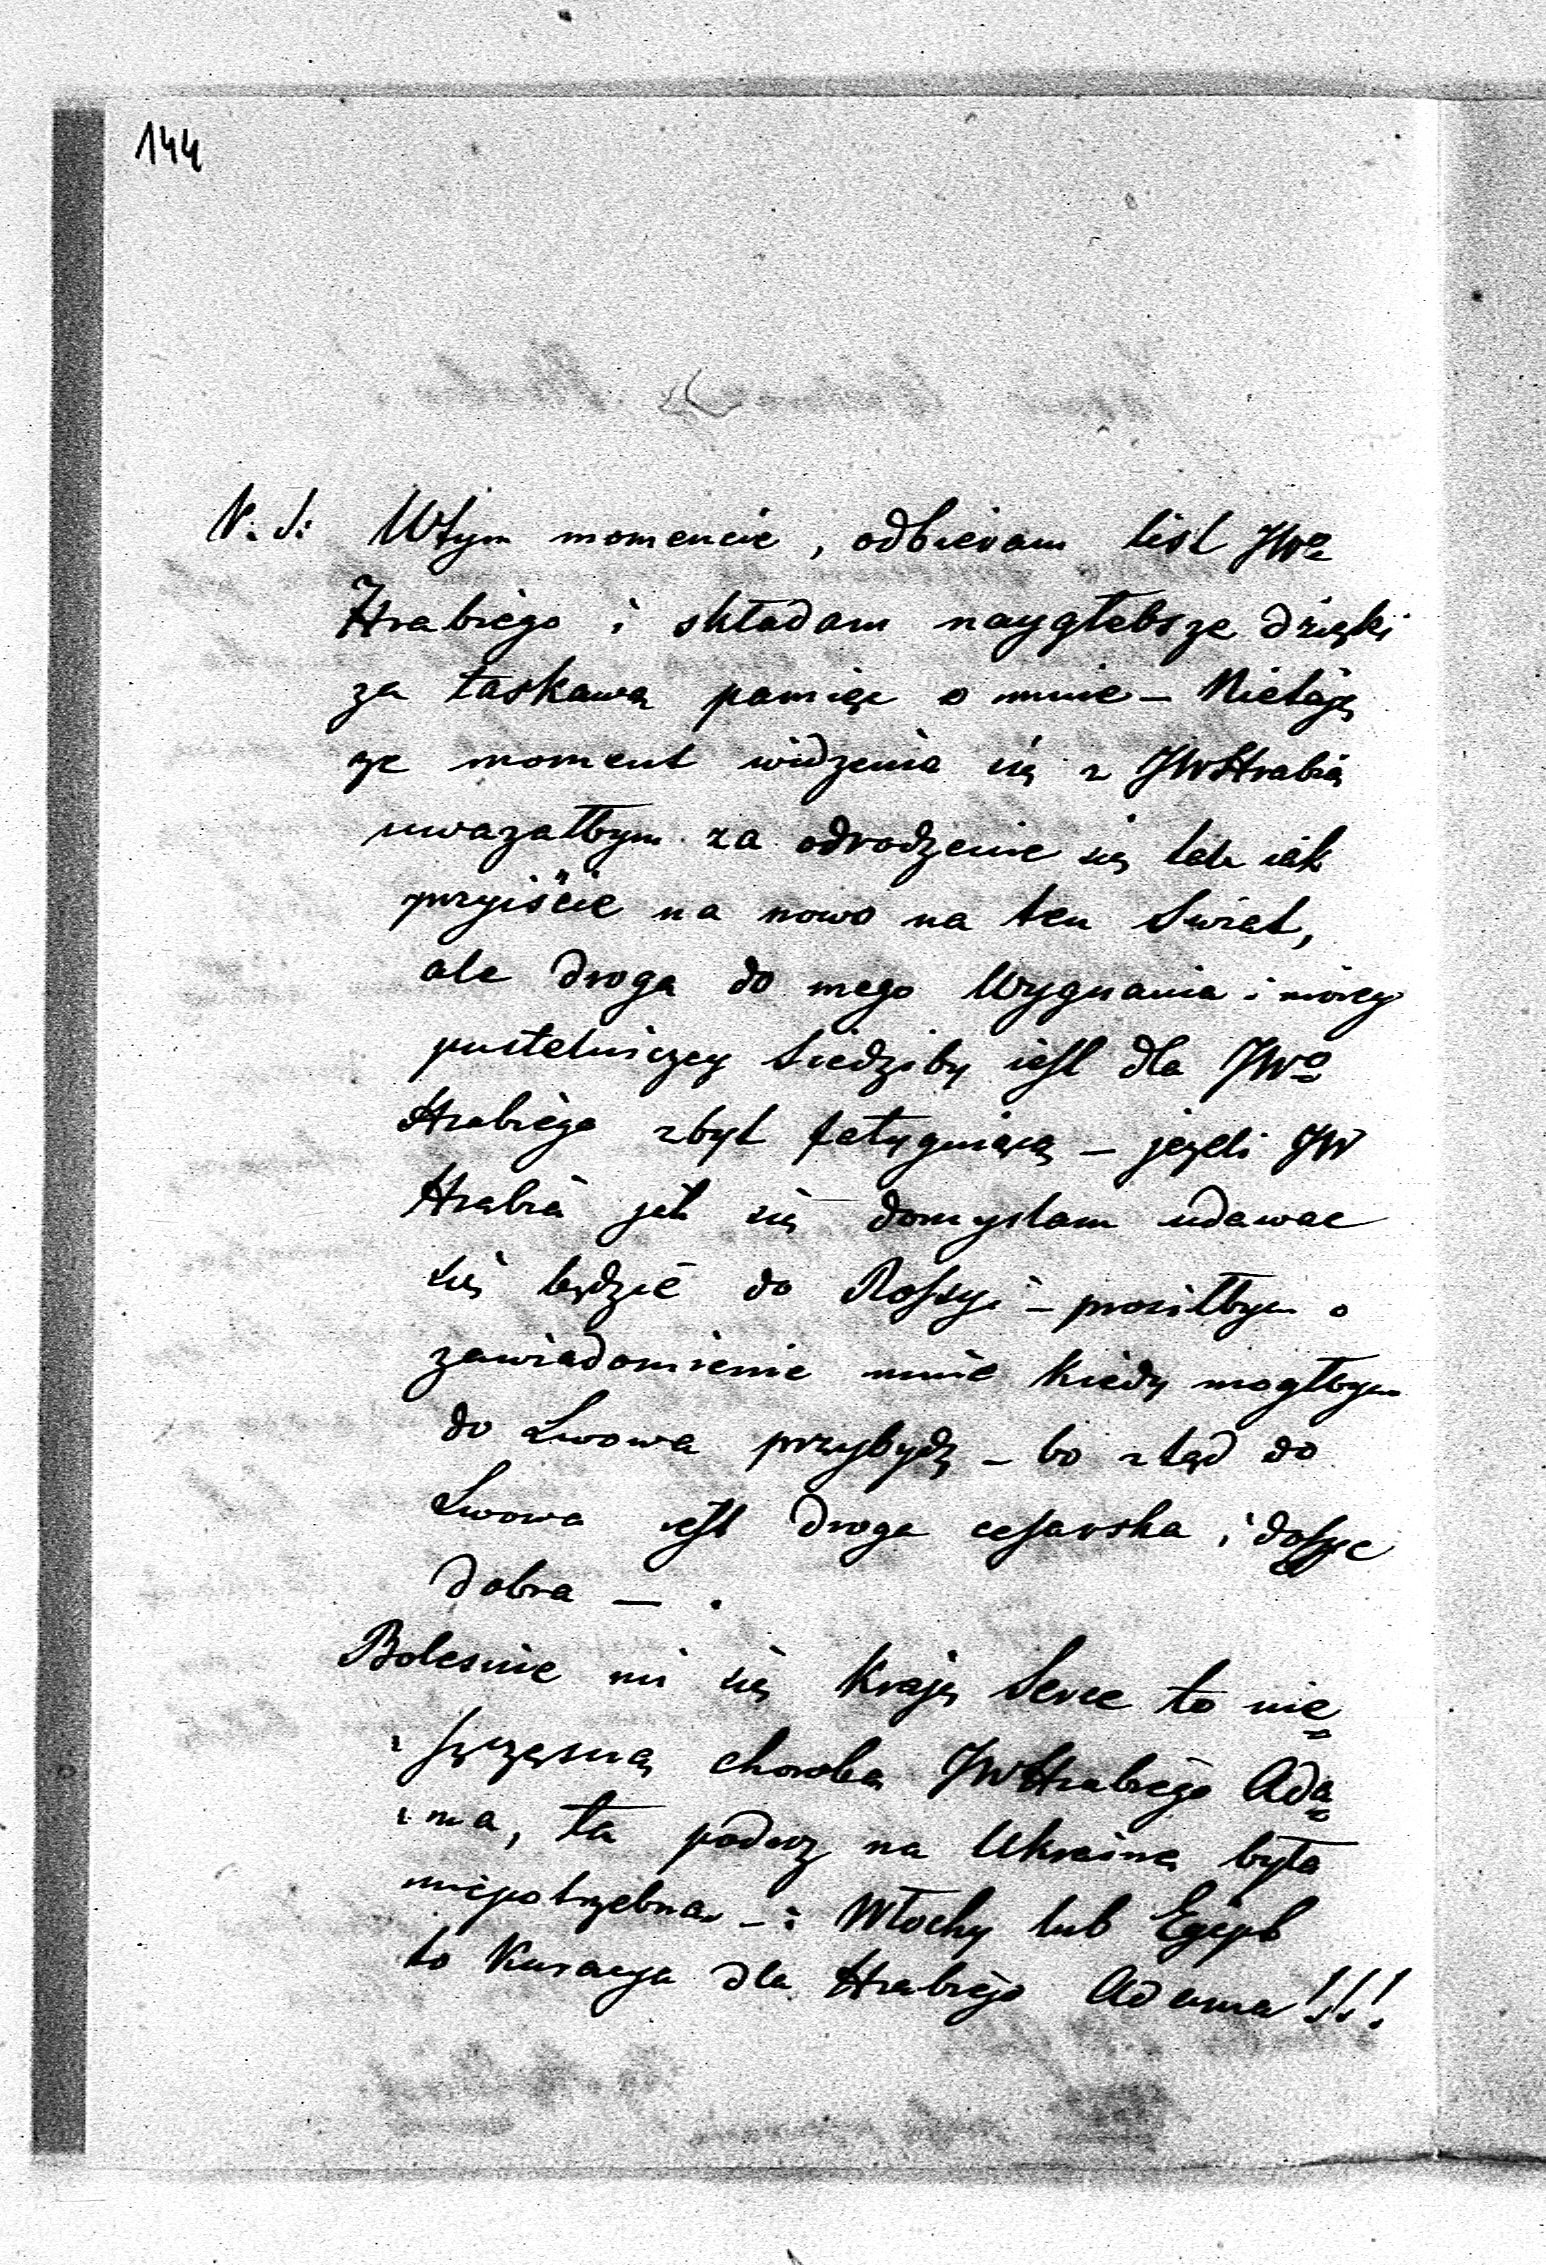 144
N. S: Wtym momencie, odbieram list JWo
Hrabiego i składam naygłebsze dzięki
za łaskawą pamięc o mnie – Nietaję
że moment widzenia się z JWHrabią
uwazałbym za odrodzenie się tak iak
przyiście na nowo na ten Swiat,
ale droga do mego Wygnania i moiey
pustelniczey Siedziby iest dla JWo
Hrabiego zbyt fatyguiącą – jezeli JW
Hrabia jak się domyslam udawac
się będzie do Rossyi – prosiłbym o
zawiadomienie mnie kiedy mogłbym
do Lwowa przybydź – bo ztąd do
Lwowa iest droga cesarska i dosyc
dobra – .
Bolesnie mi się kraję Serce to nie=
szczęsną chorobą JWHrabiego Ada=
ma, ta podroz na Ukrainę była
niepotrzebna –: Włochy lub Egipt
to Kuracya dla Hrabiego Adama!!!